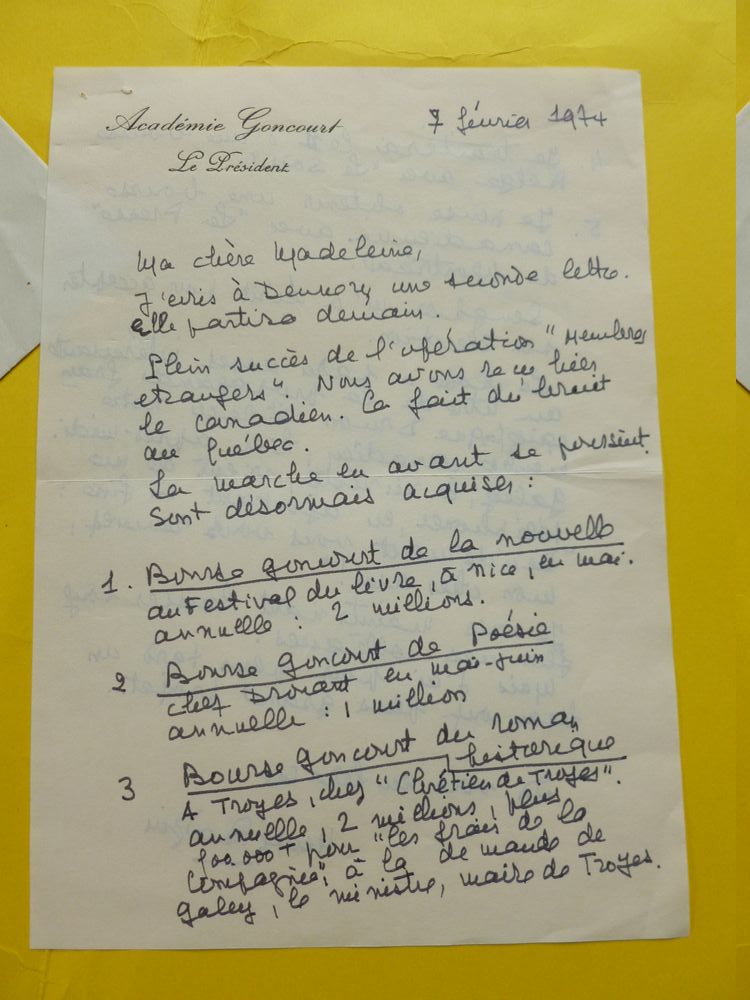 Académie Goncourt
Le Président
7 février 1974
Ma chère Madeleine,
J'écris à une seconde lettre.
elle partira demain.
Plein succès de l'opération "Membres
étrangers". Nous avons reçu hier
le canadien. Ca fait du bruit
au Québec.
La marche en avant se poursuit.
Sont désormais acquises :
1. Bourse goncourt de la nouvelle
au Festival du livre, à Nice, en mai.
annuelle : 2 millions.
2 Bourse goncourt de Poésie
chez Drouant en mai-juin
annuelle : 1 million
3 Bourse goncourt du roman
historique
A Troyes, chez "Chrétien de Troyes".
annuelle, 2 millions, plus
pour "les frais de la
Compagnie", à la demande de
Galey, le ministre, maire de Troyes.